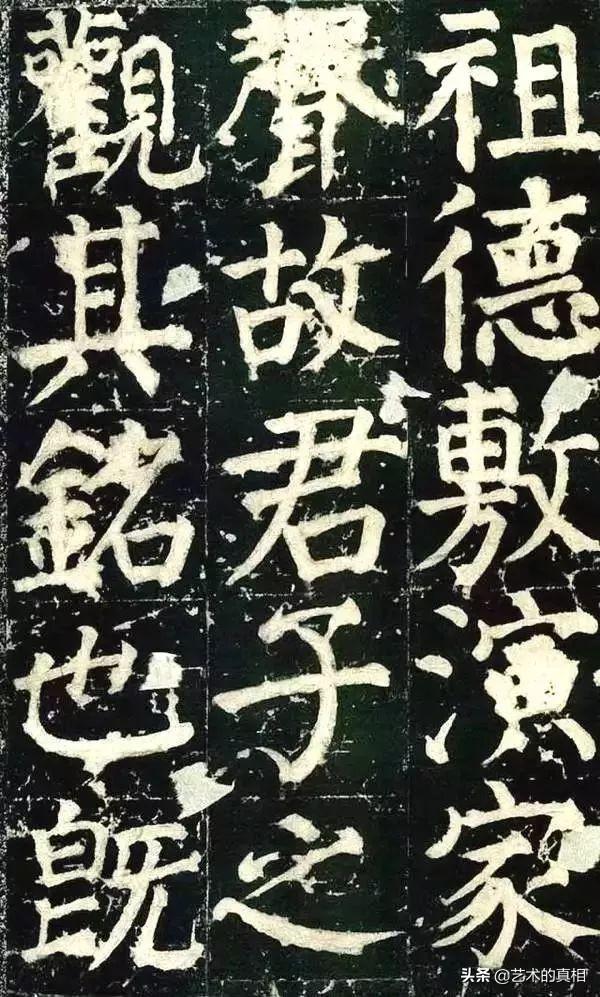 祖德敷演家
聲故君子之
觀其銘也既
头条@艺术的真相